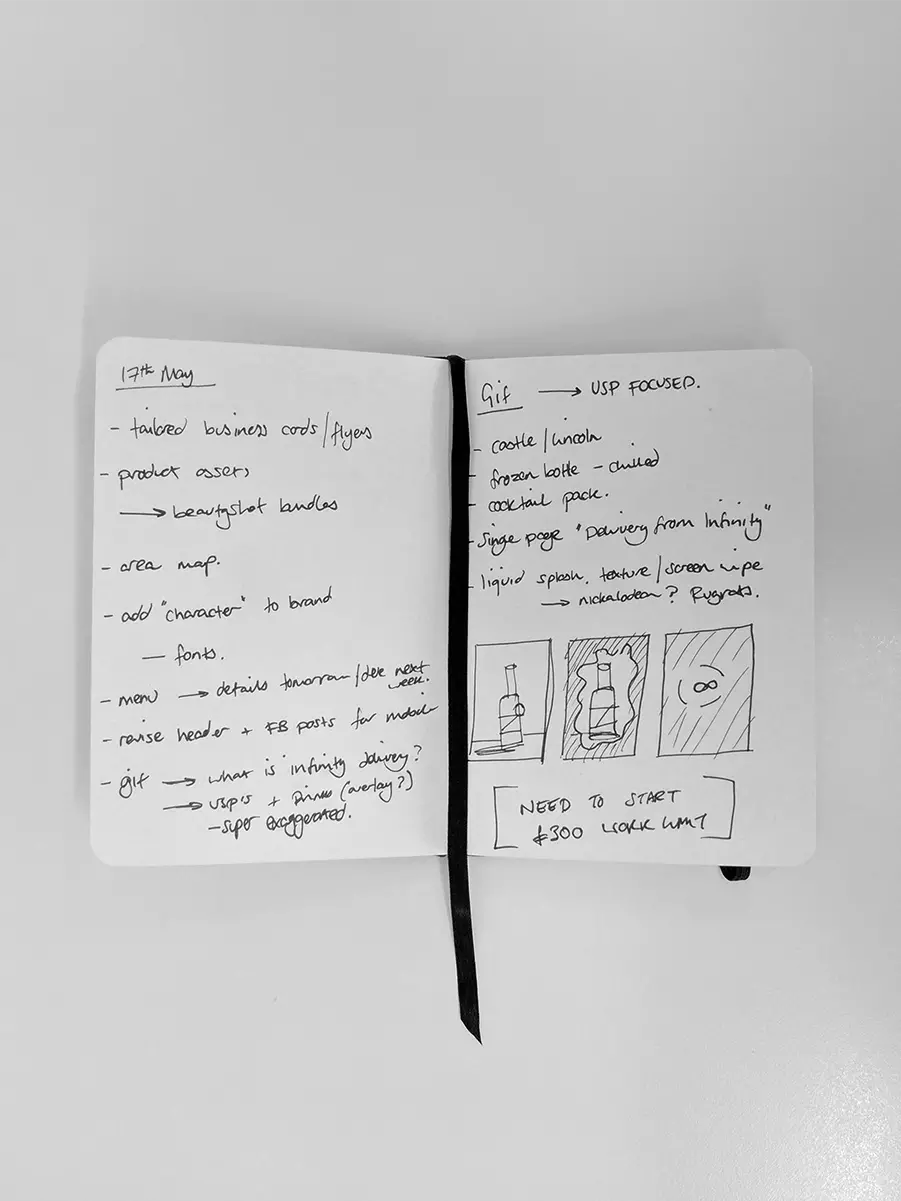 17th May
- tailored business cards/flyers
- product assets
→ beautyshot bundles
- area map.
- add "character" to brand
— fonts.
- menu → details tomorrow/dete next
week.
- revise header + FB posts for mobile
- gif → what is infinity delivery?
→ USP's + (overlay?)
- super exaggerated.
Gif → USP FOCUSED.
- castle/lincoln
- frozen bottle - chilled
- cocktail pack.
- Singe page "Delivery from Infinity"
- liquid splash. texture/screen wipe
→ nickalodean? Rugrats.
∞
[NEED TO START
£300 WORK]